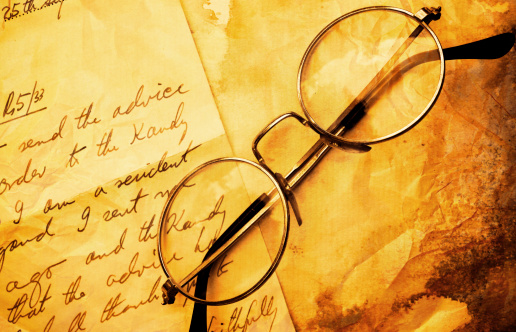 25th
Rs 5/33
send the advice
order to the Kandy
I am a resident
I sent
ago and the Kandy
that the advice
thank
faithfully